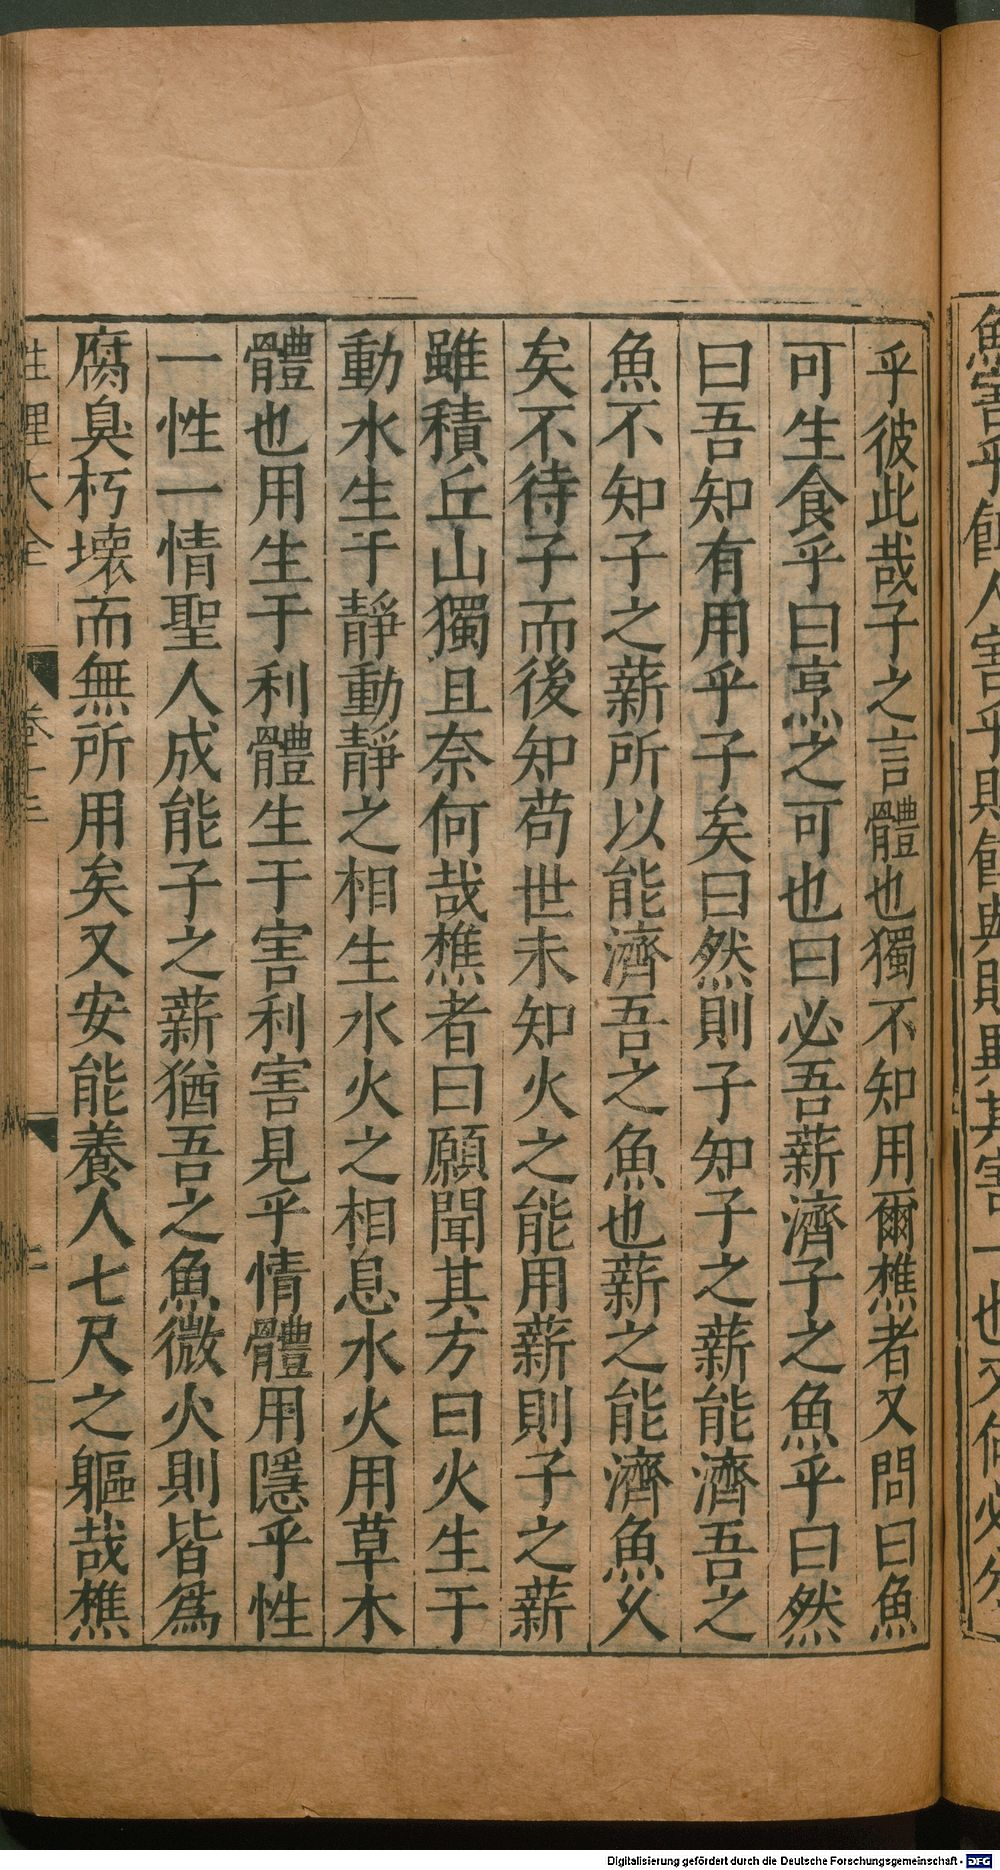 魚害乎餌人害乎財餌與財其害一也又何必分
乎彼此哉子之言體也獨不知用爾樵者又問曰魚
可生食乎曰烹之可也曰必吾薪濟子之魚乎曰然
曰吾知有用乎子矣曰然則子知子之薪能濟吾之
魚不知子之薪所以能濟吾之魚也薪之能濟魚久
矣不待子而後知苟世未知火之能用薪則子之薪
雖積丘山獨且奈何哉樵者曰願聞其方曰火生于
動水生于靜動靜之相生水火之相息水火用草木
體也用生于利體生于害利害見乎情體用隱乎性
一性一情聖人成能子之薪猶吾之魚微火則皆為
腐臭朽壞而無所用矣又安能養人七尺之軀哉樵
性理大全
Digitalisierung gefördert durch die Deutsche Forschungsgemeinschaft - DFG